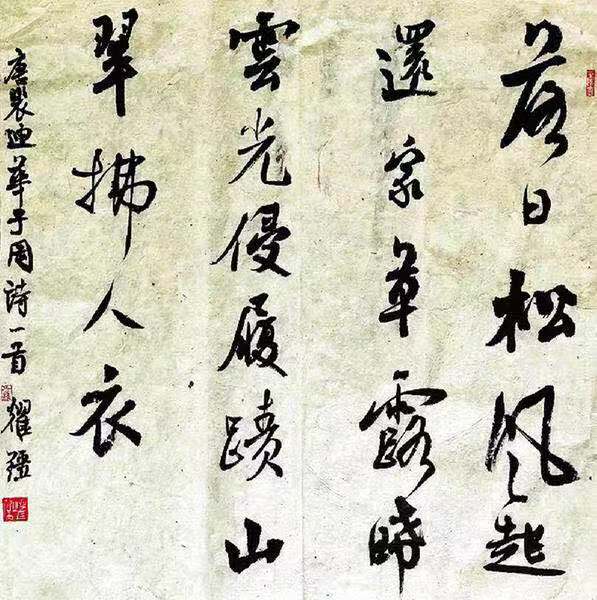 落日松風起
還家草露晞
雲光侵履蹟山
翠拂人衣
唐裴迪華子岡詩一首 耀疆